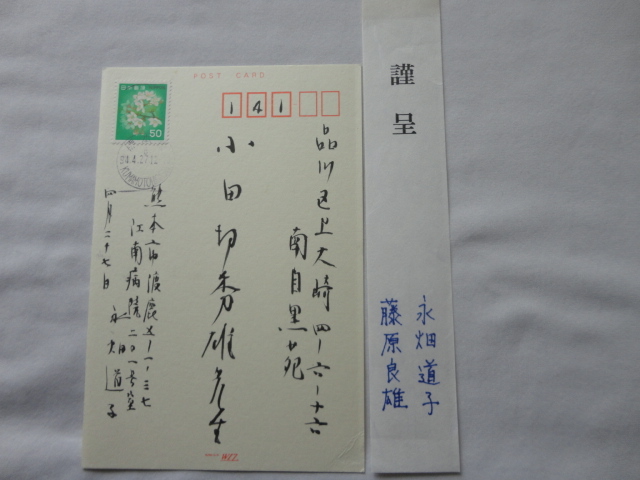 POST CARD
141
品川区上大崎四ー六ー十六
南目黒苑
小田切秀雄先生
熊本市渡鹿五ー一ー三七
江南病院二〇一号室
永畑道子
四月二十七日
日本郵便
50
84.4.27
謹呈
永畑道子
藤原良雄